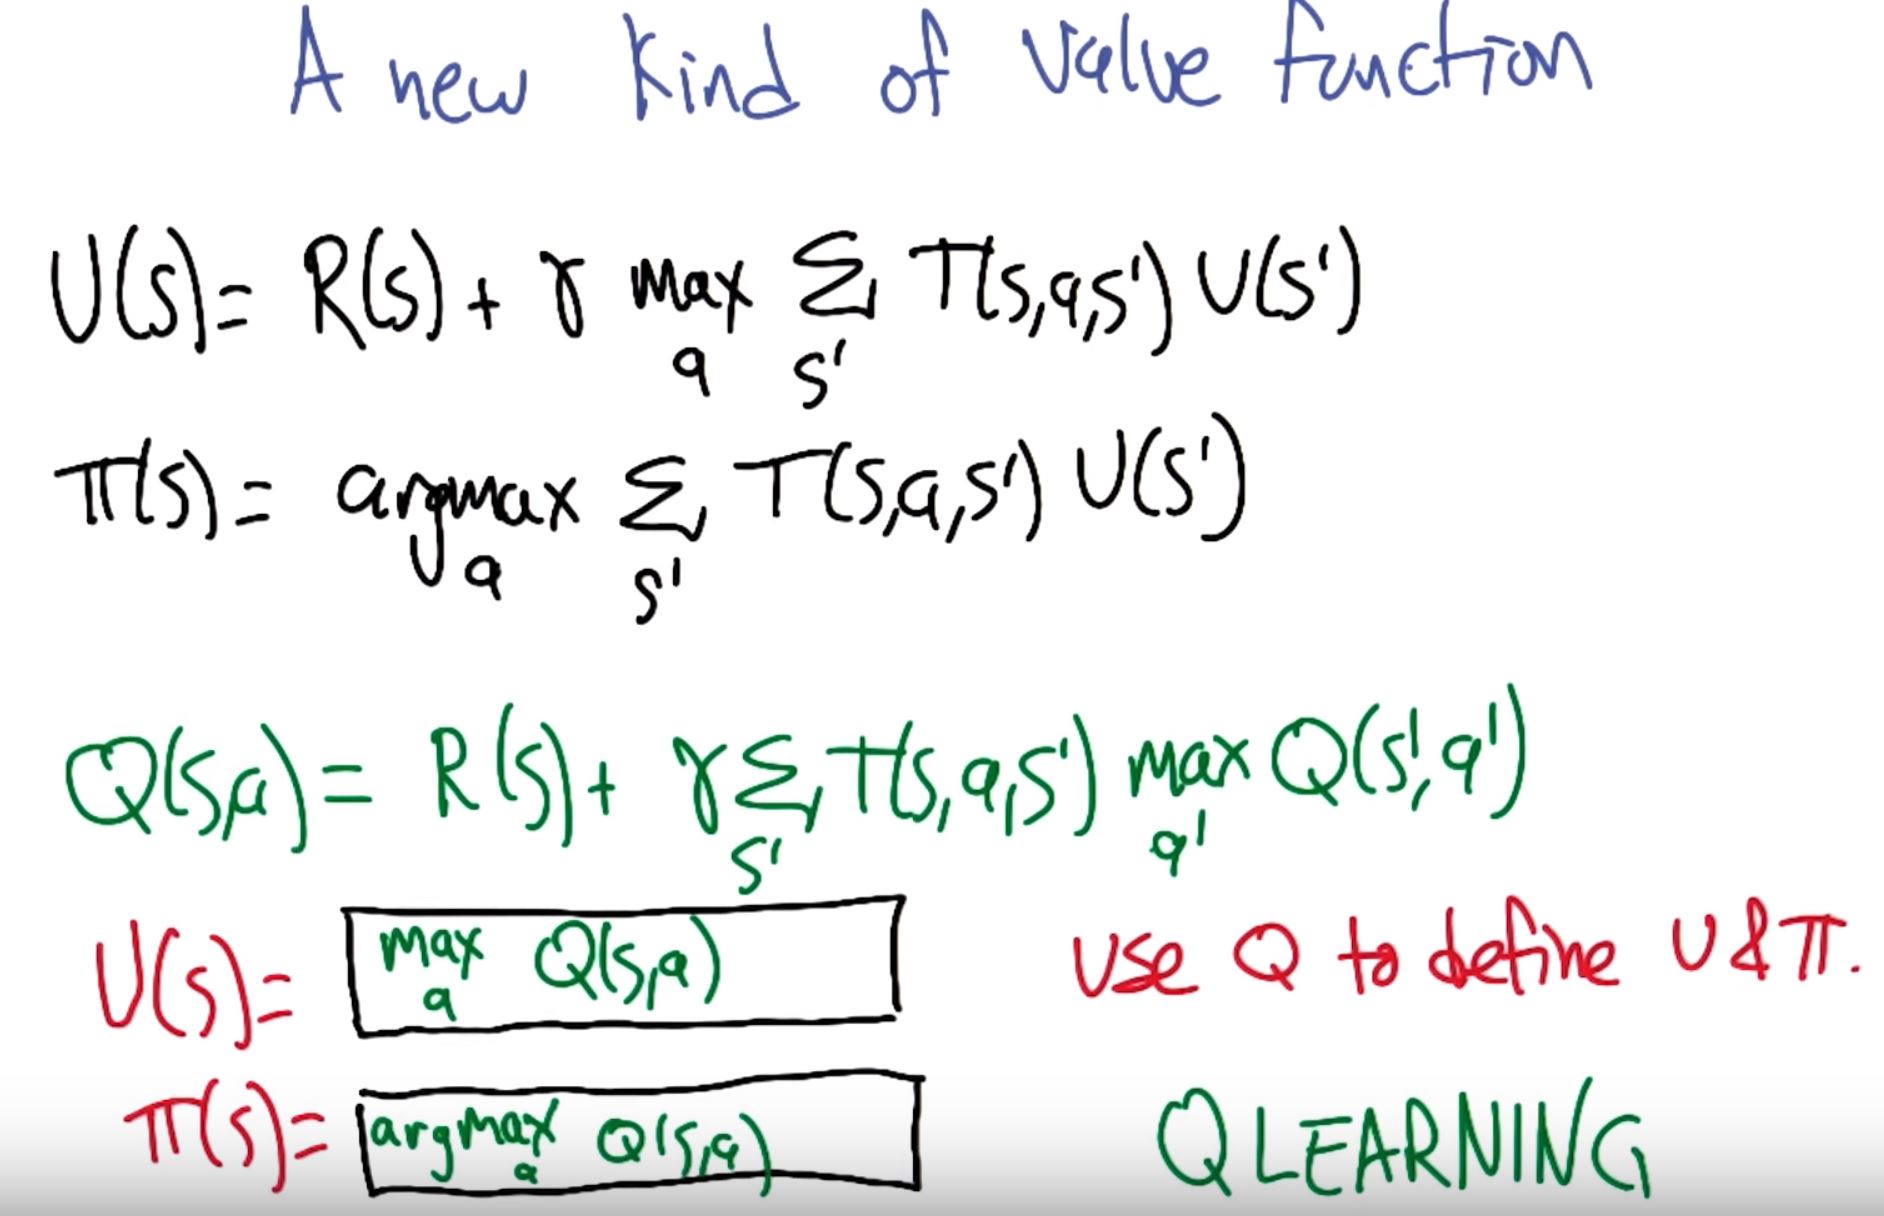 A new kind of value function
U(s)= R(s) + γ max Σ T(s,a,s') U(s')
a s'
π(s)= argmax Σ T(s,a,s') U(s')
a s'
Q(s,a)= R(s)+ γ Σ T(s,a,s') max Q(s',a')
s' a'
U(s)= max Q(s,a) use Q to define U & π.
a
π(s)= argmax Q(s,a) QLEARNING
a